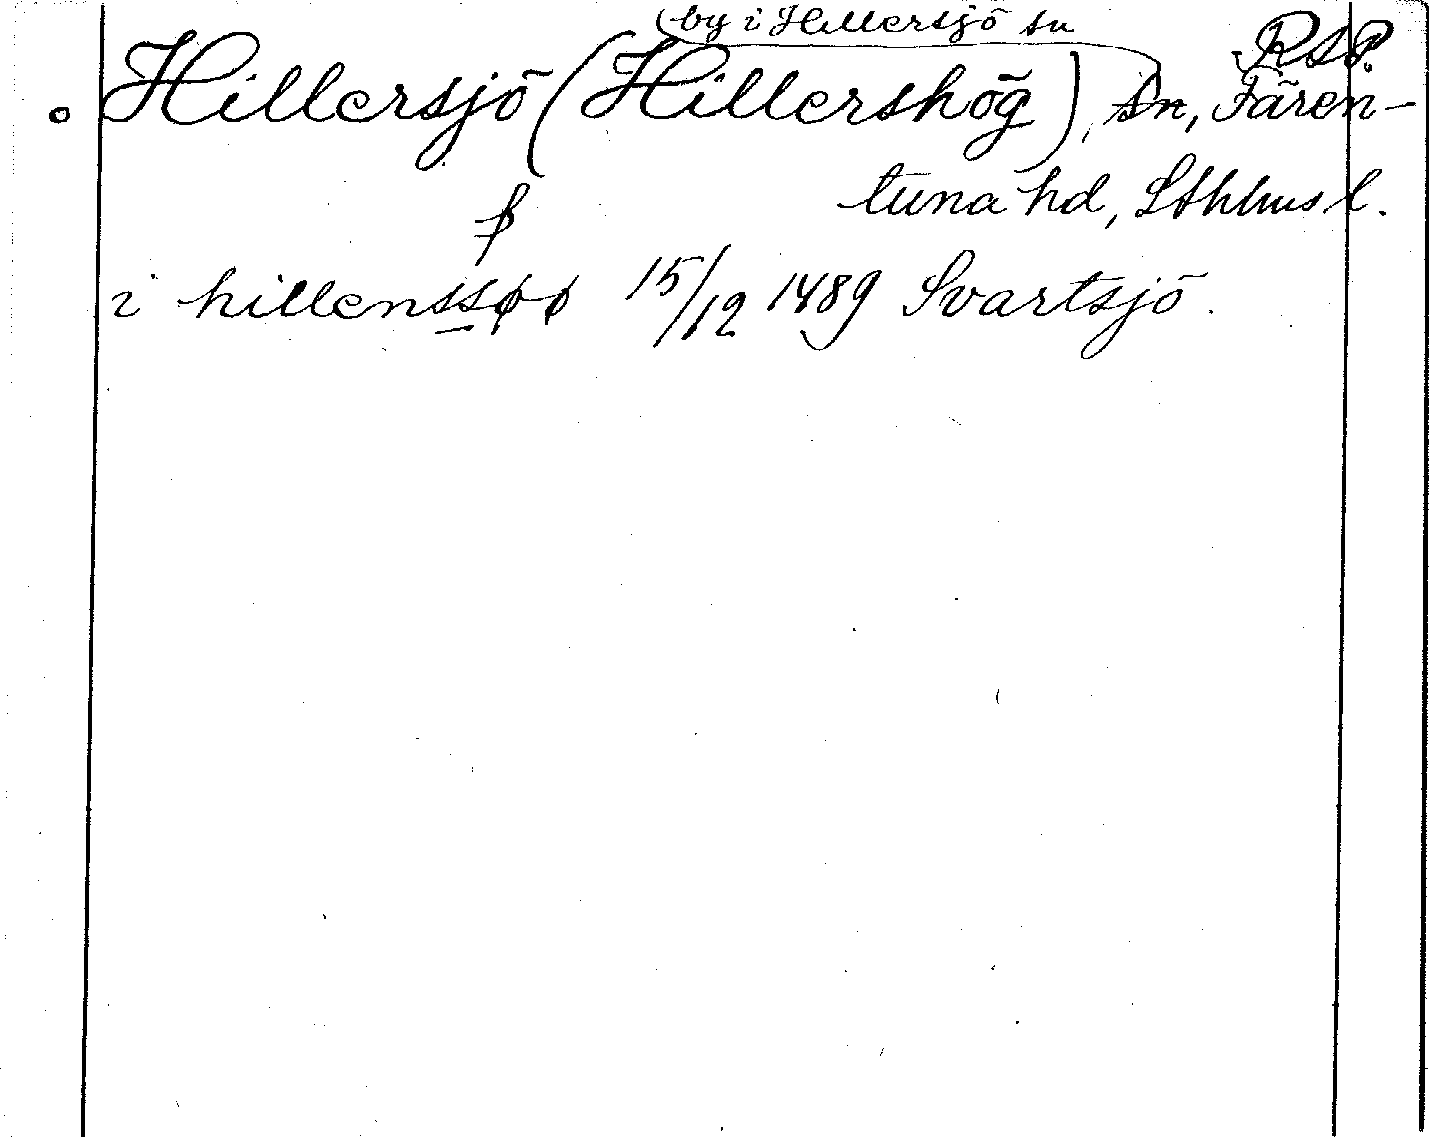 (by i Hillersjö sn
RSP.
Hillersjö (Hillershög), sn, Fären-
tuna hd, Sthlms l.
i hillenssøø 15/12 1489 Svartsjö.